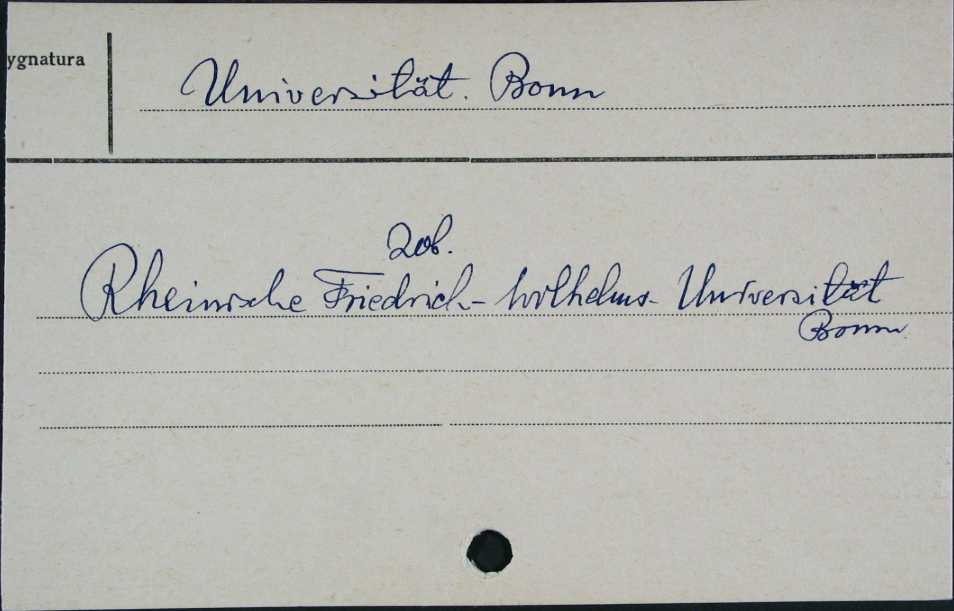 ygnatura
Universität. Bonn
Zob.
Rheinische Friedrich-Wilhelms-Universität
Bonn